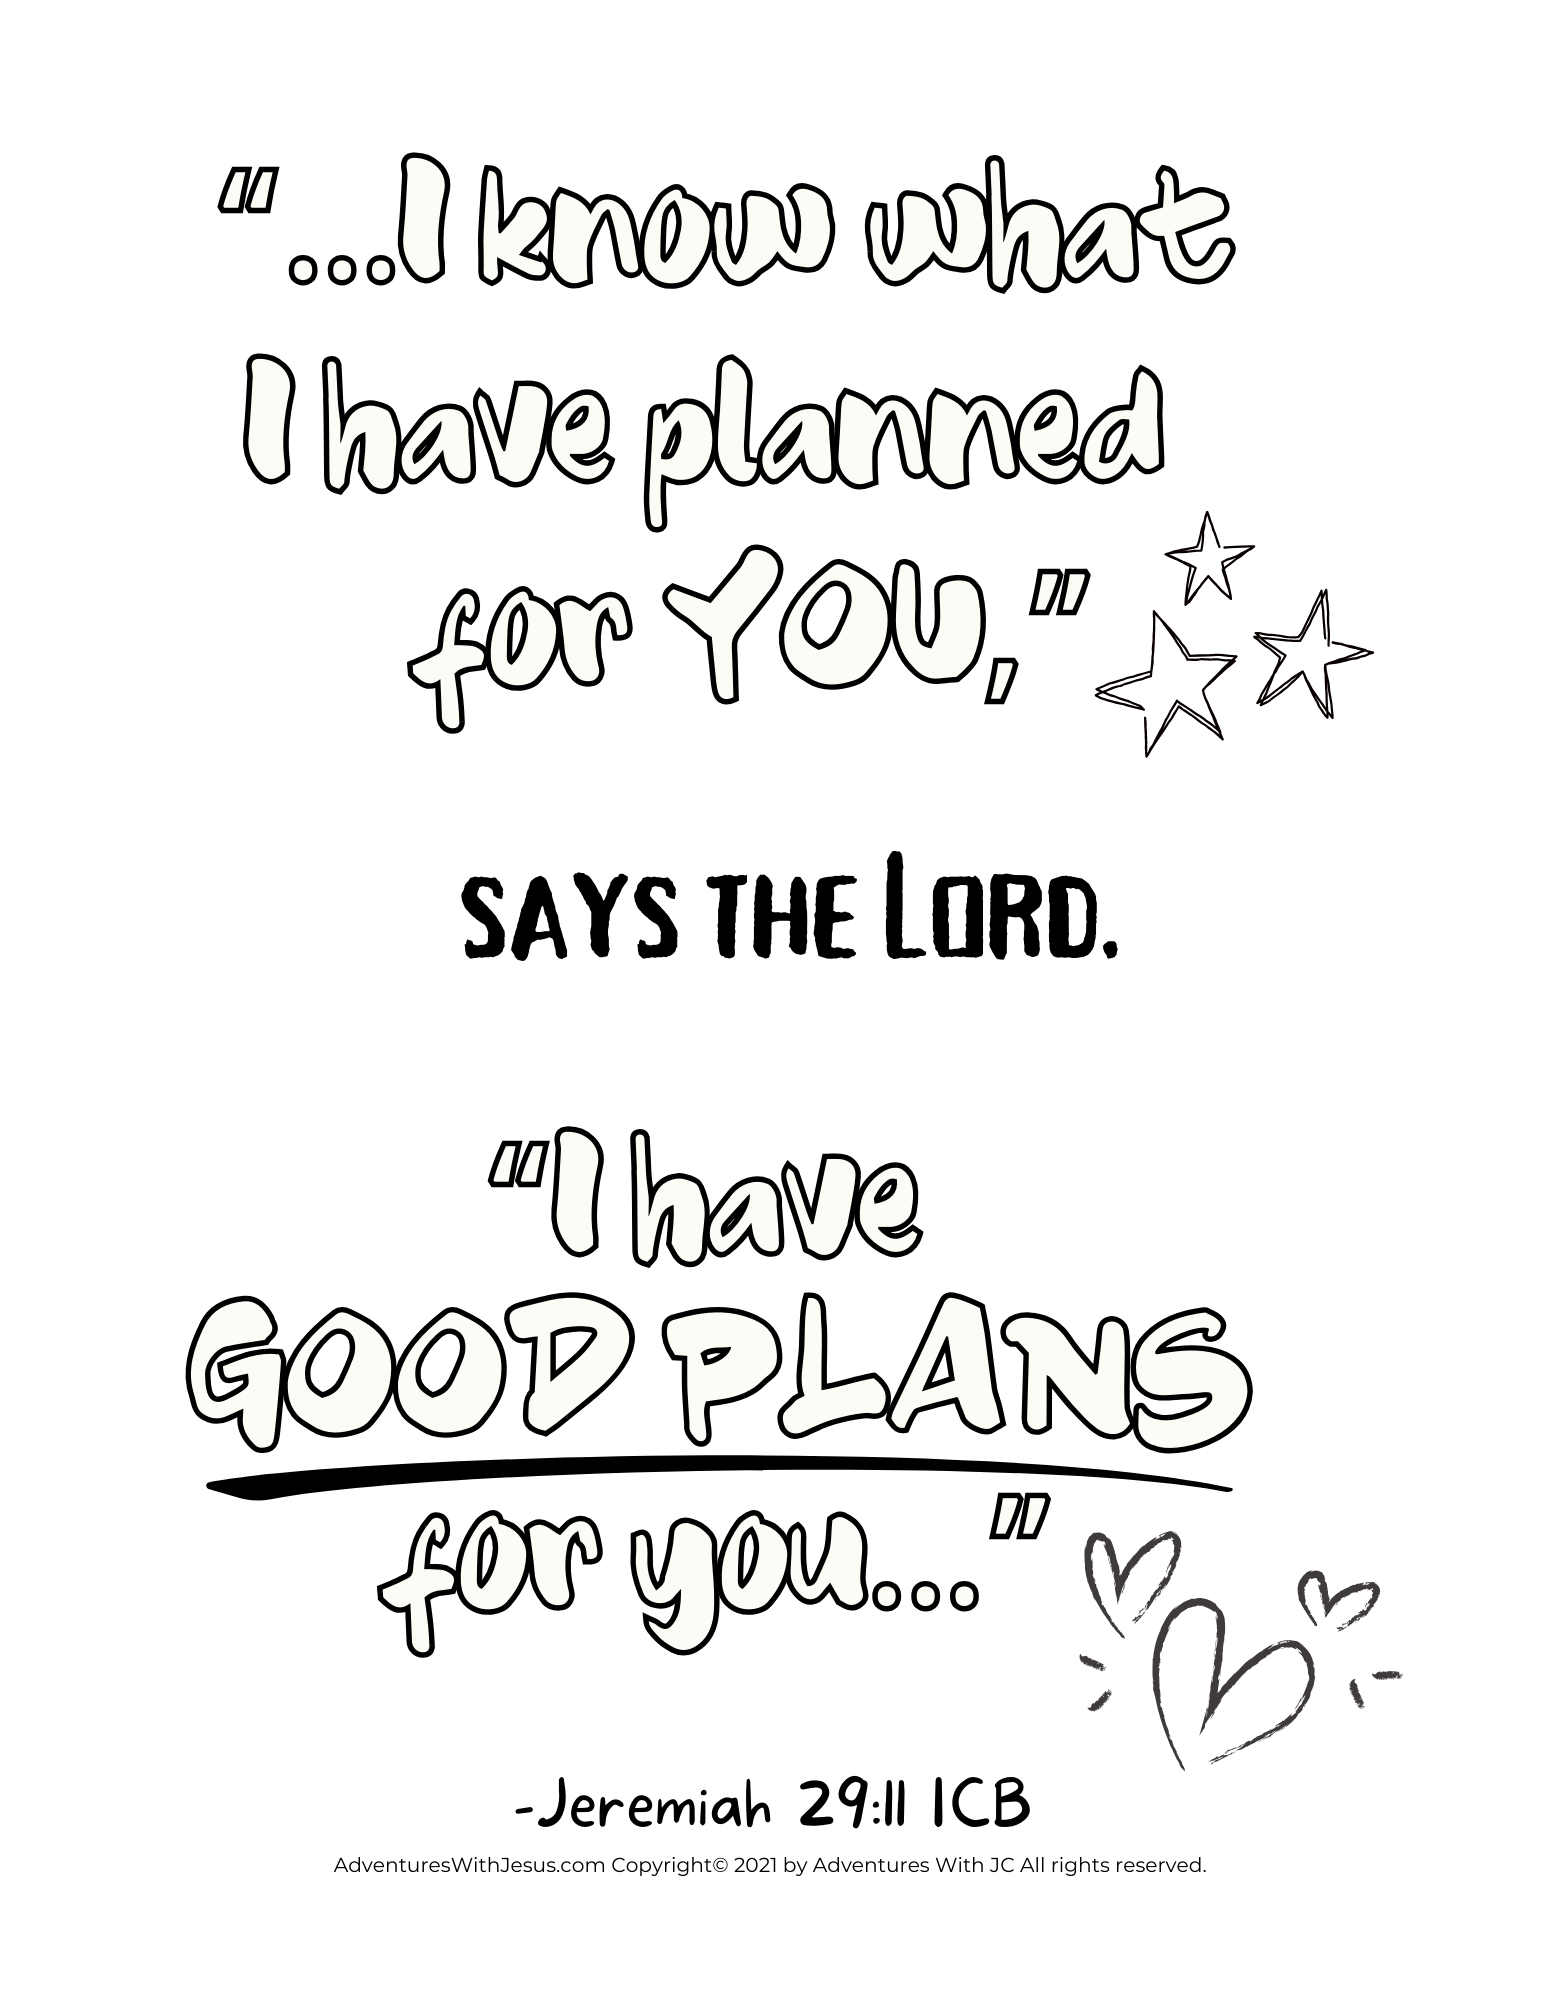 "...I know what
I have planned
for YOU,"
SAYS THE LORD.
"I have
GOOD PLANS
for you..."
-Jeremiah 29:11 ICB
AdventuresWithJesus.com Copyright© 2021 by Adventures With JC All rights reserved.